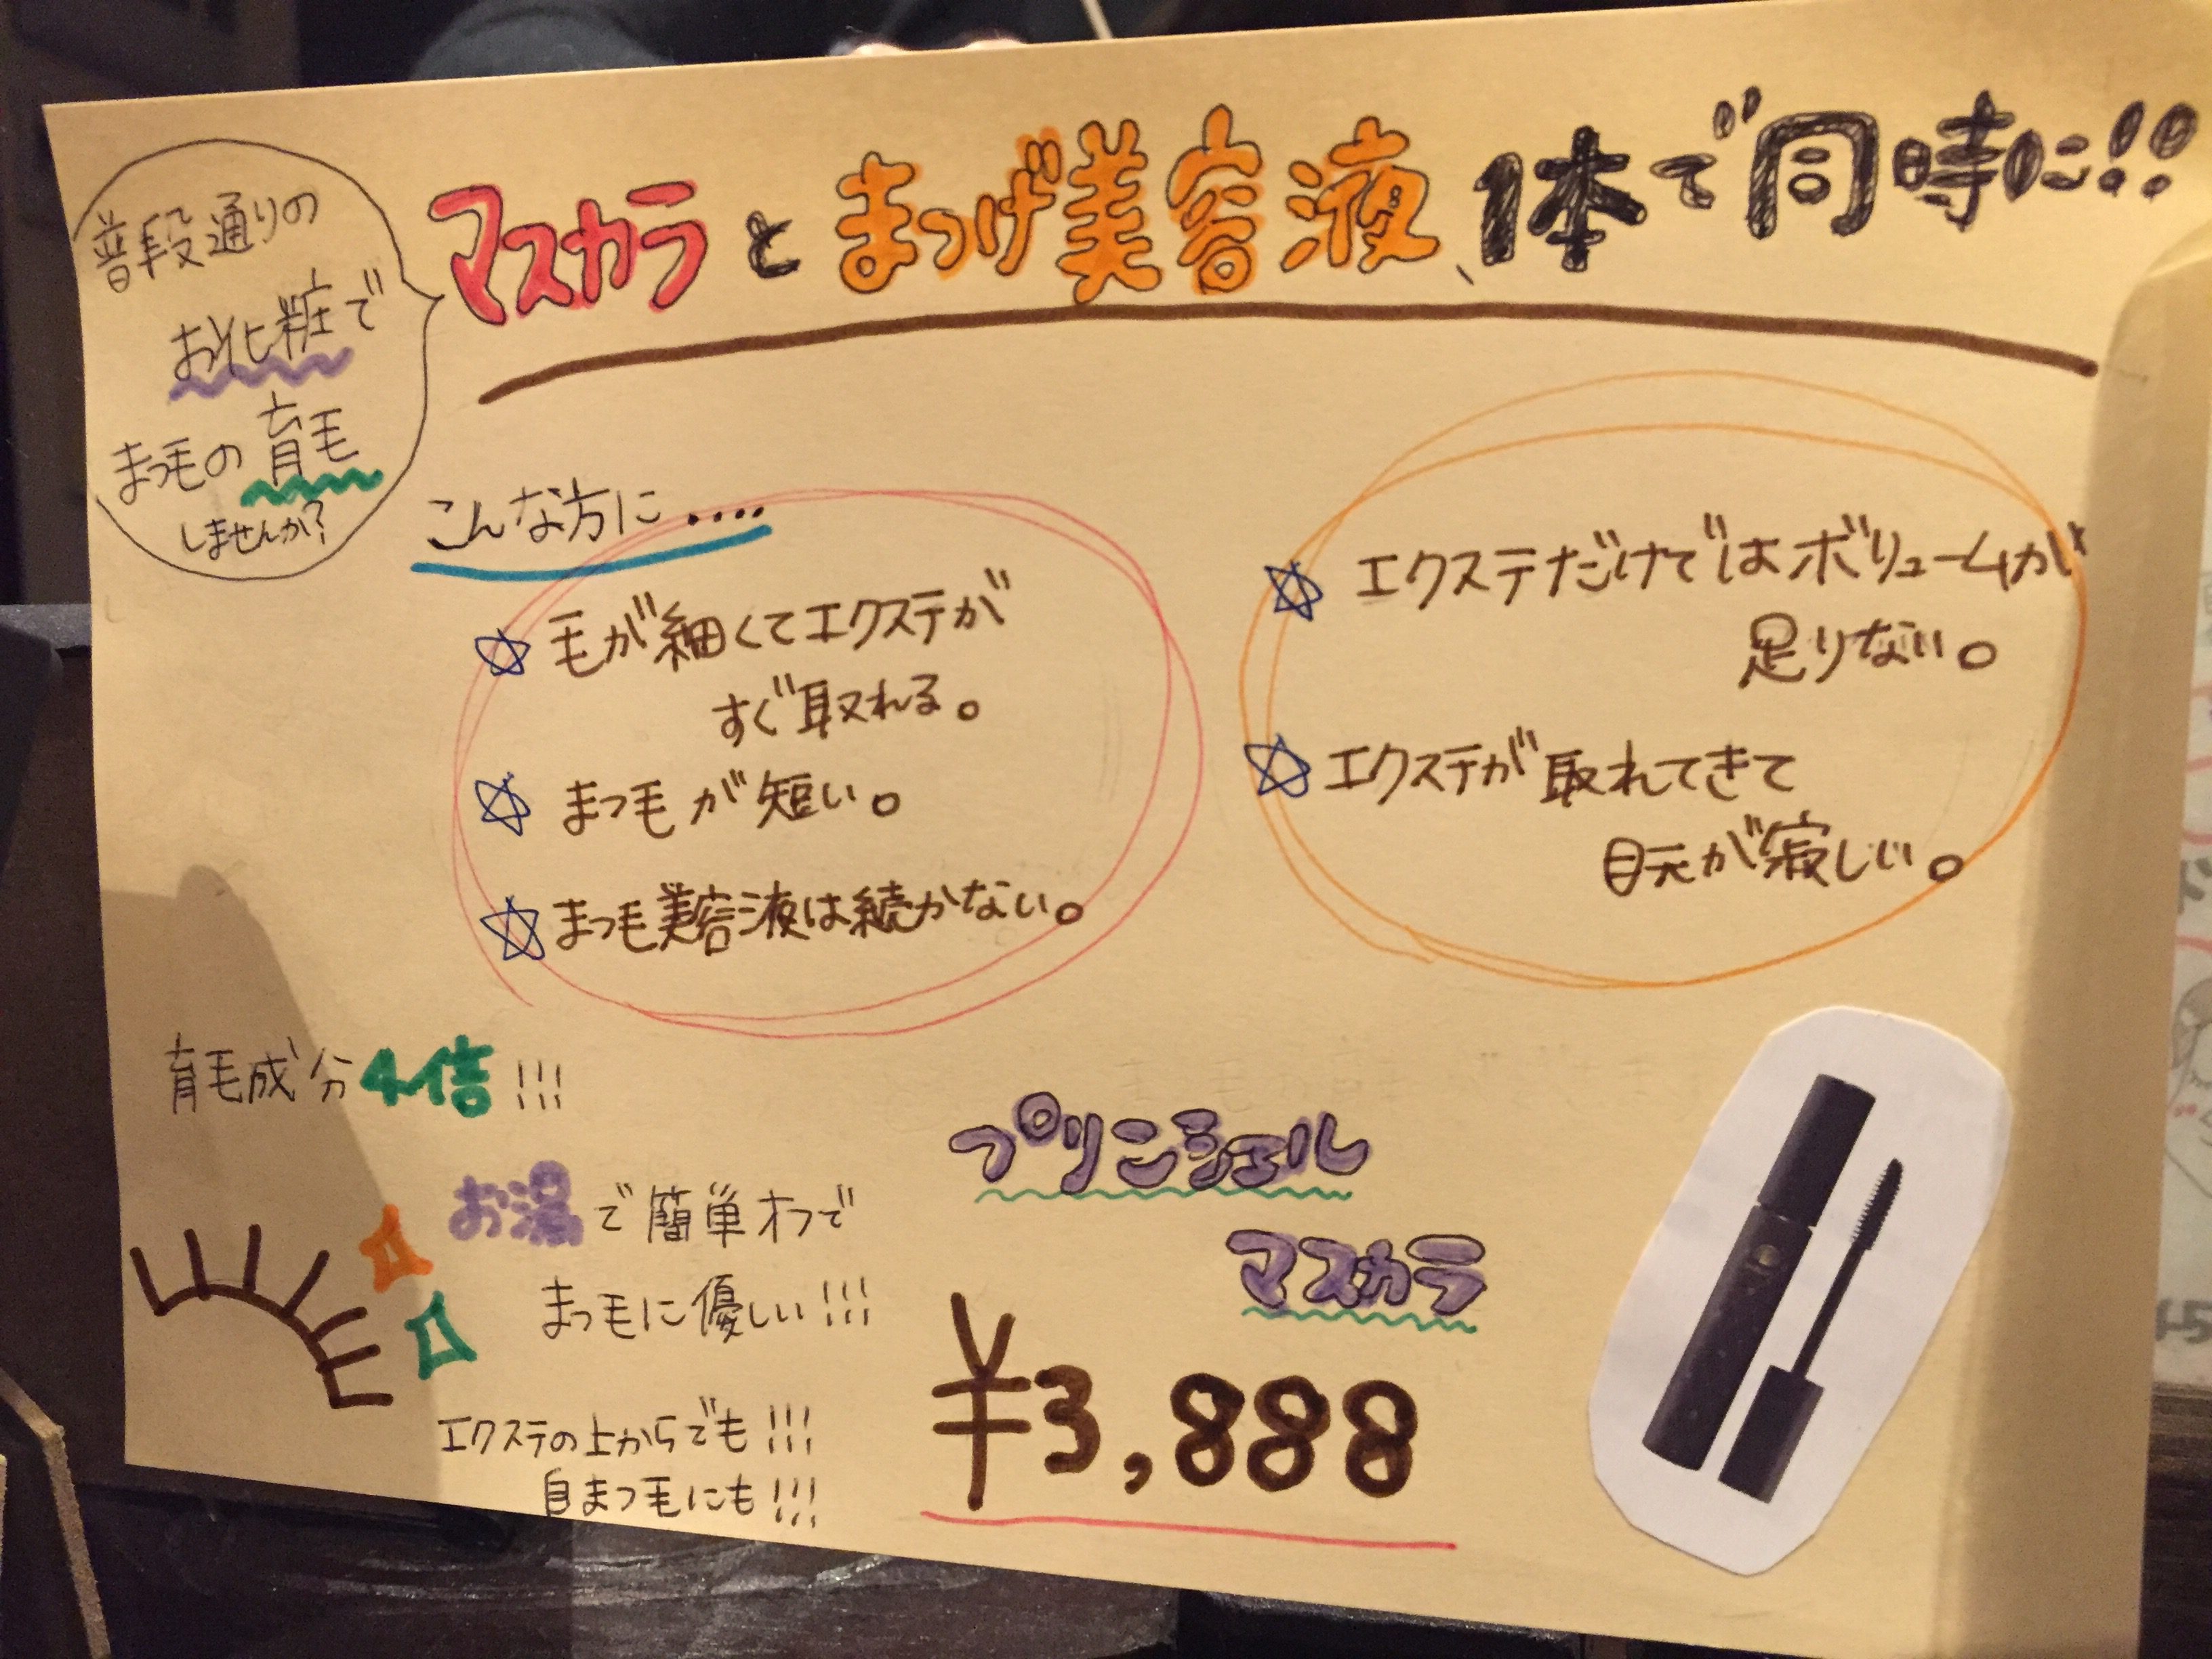 マスカラとまつげ美容液、1本で同時に!!
普段通りの
お化粧で
まつ毛の育毛
しませんか?
こんな方に....
☆毛が細くてエクステが
すぐ取れる。
☆まつ毛が短い。
☆まつ毛美容液は続かない。
☆エクステだけではボリュームが
足りない。
☆エクステが取れてきて
目元が寂しい。
育毛成分4倍!!!
お湯で簡単オフで
まつ毛に優しい!!!
エクステの上からでも!!!
自まつ毛にも!!!
プリンシェル
マスカラ
¥3,888